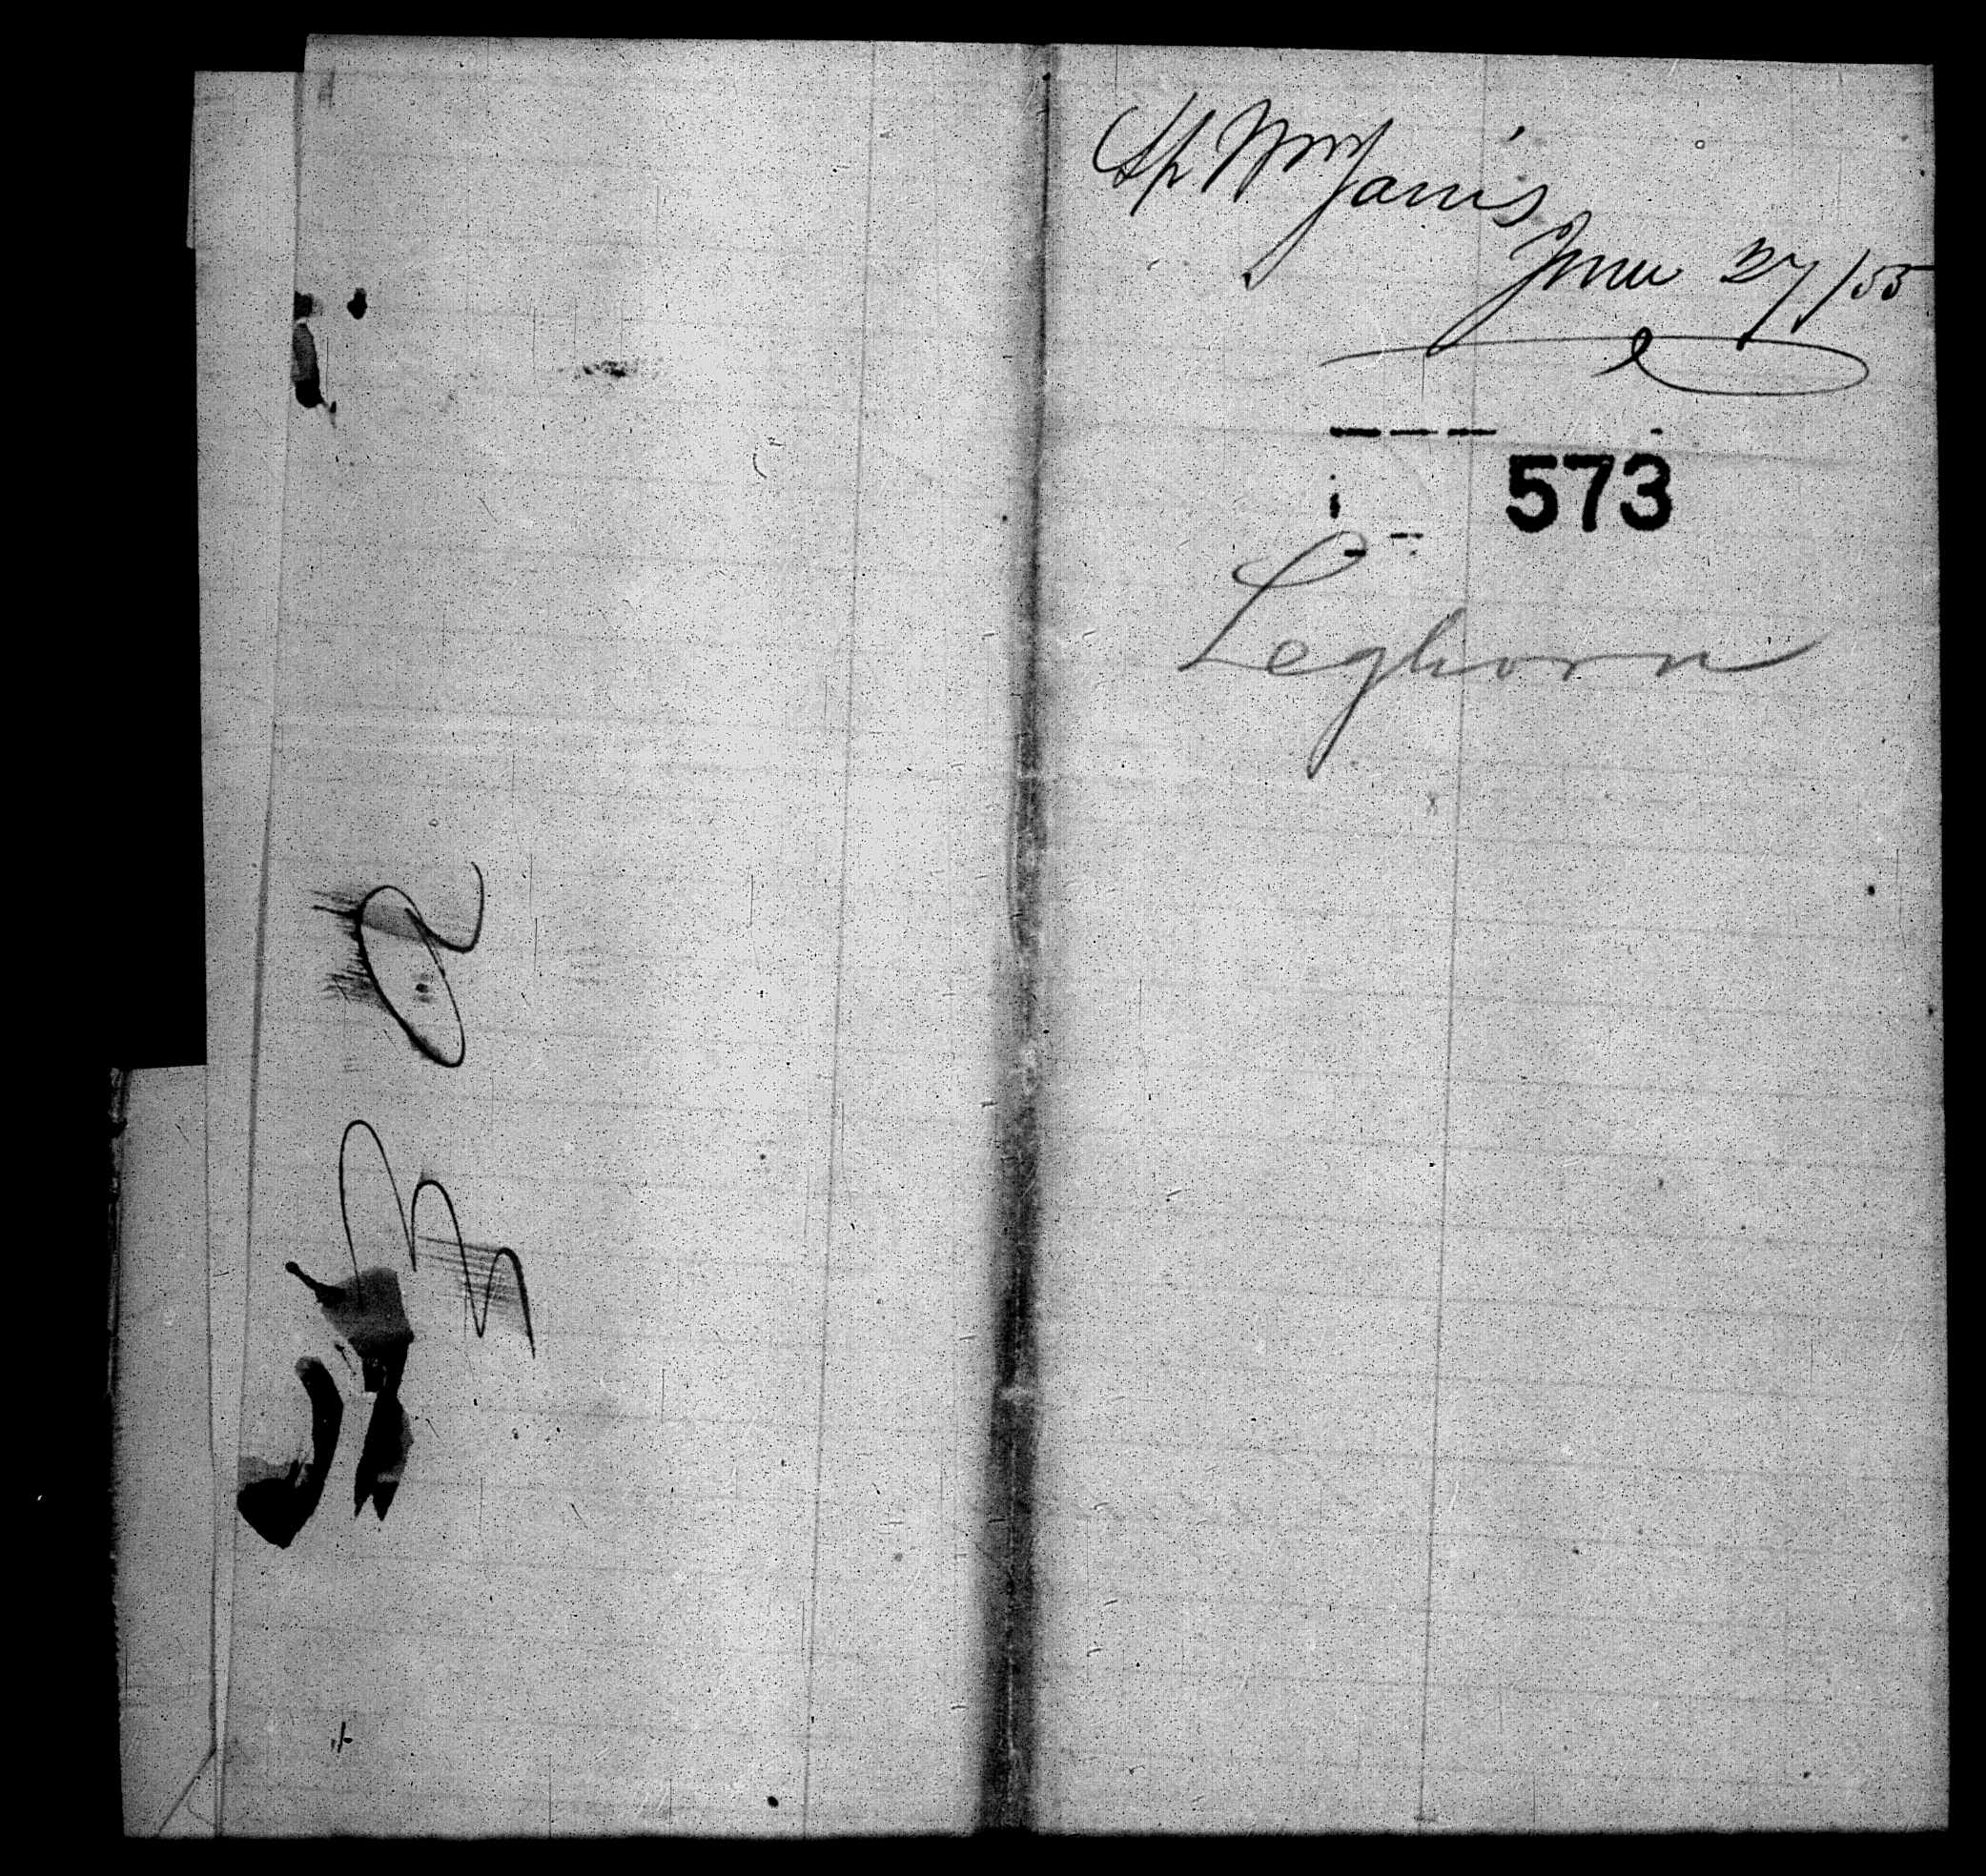 Sp Wm Jarvis
June 27/55
573
Leghorn